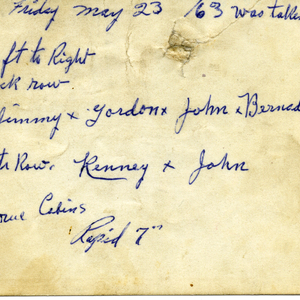 Friday May 23 63 was take
ft to Right
ck row.
Jimmy x Gordon x John x Berna
Row. Kenney x John
Cabins
Rapid 7"